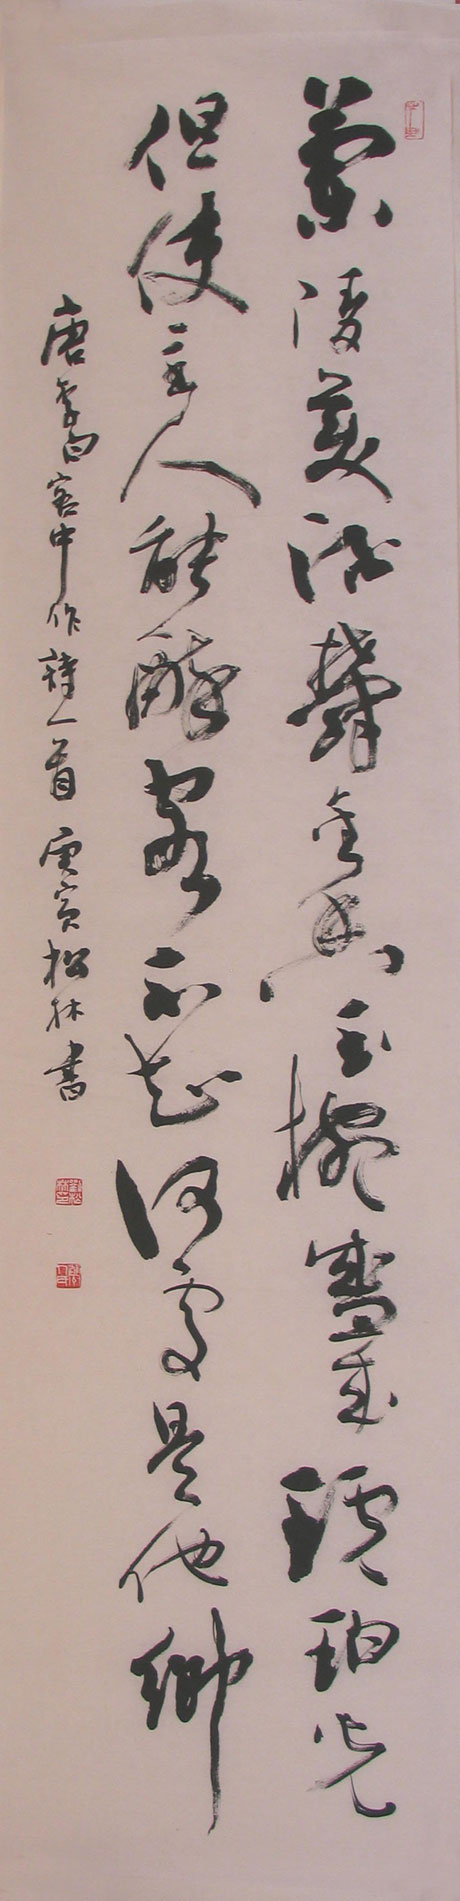 蘭陵美酒鬱金香玉椀盛来琥珀光
但使主人能醉客不知何處是他鄉
唐李白客中作詩一首 庚寅松林書